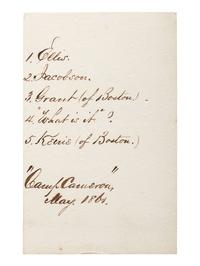 1. Ellis.
2. Jacobson.
3. Grant (of Boston).
4. "What is it"?
5. (of Boston.)
"Camp Cameron,"
May, 1861.